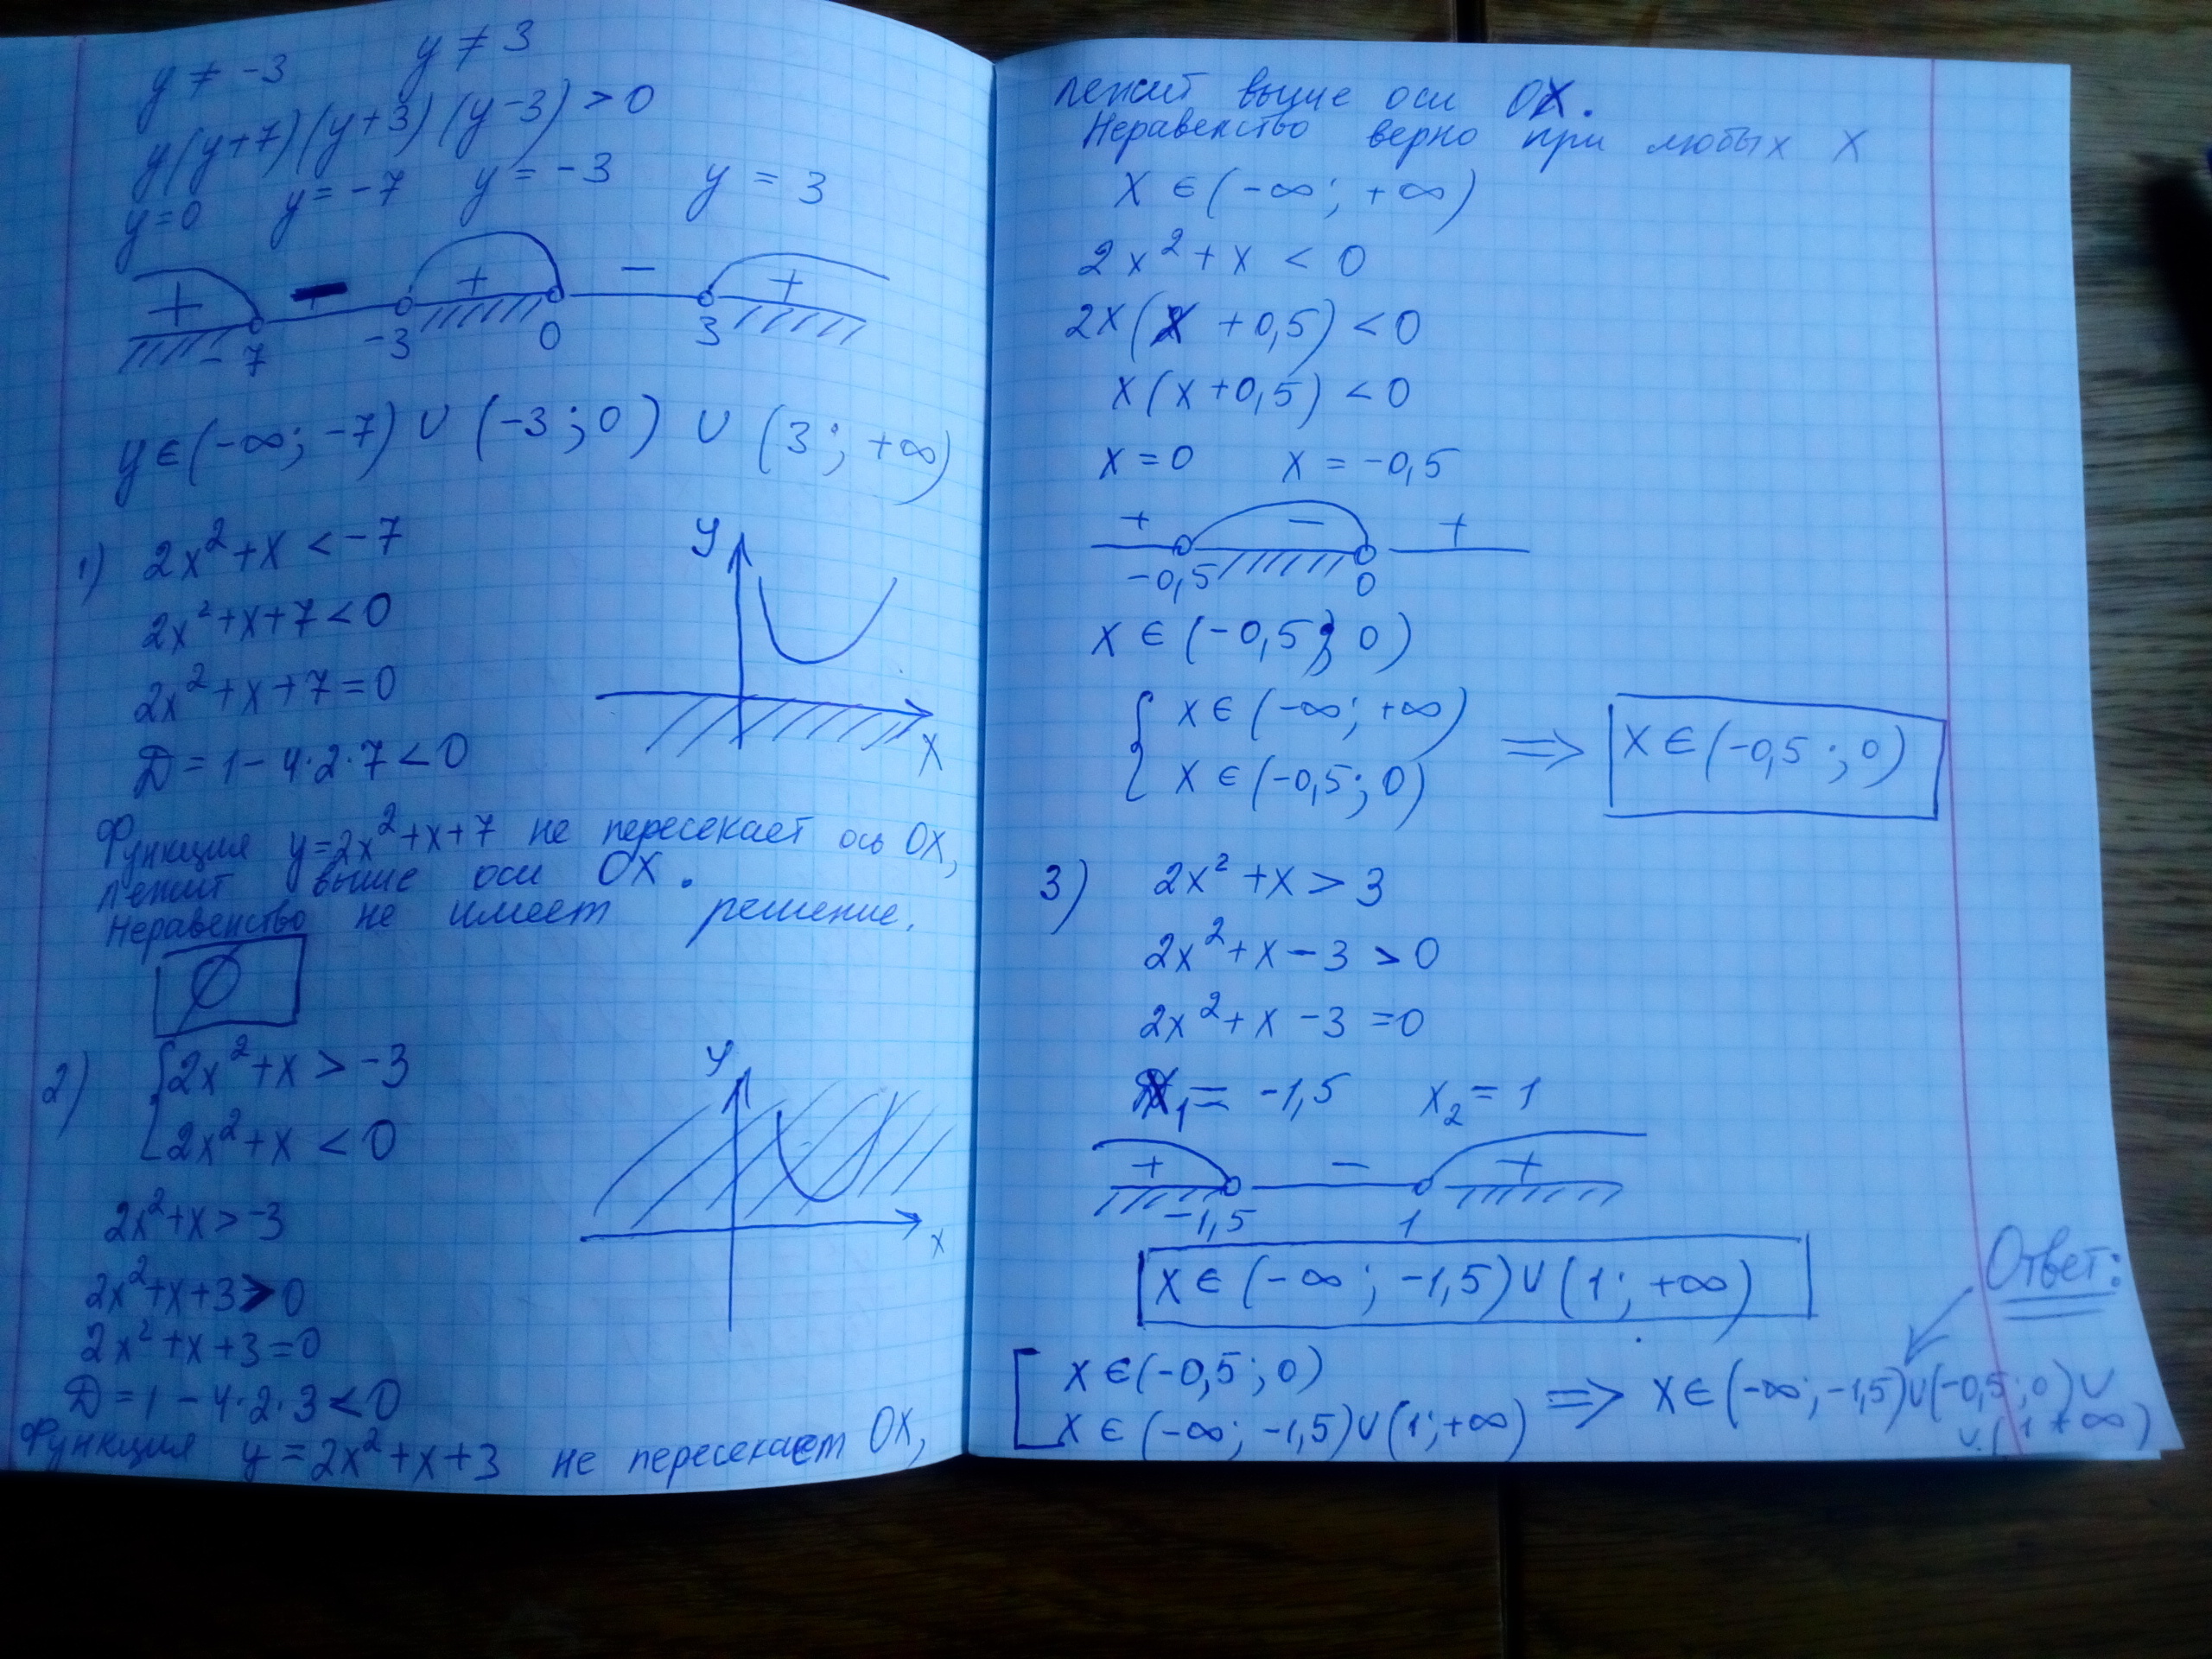 y ≠ -3 y ≠ 3
y(y+7)(y+3)(y-3) > 0
y=0 y=-7 y=-3 y=3
+ - + - +
-7 -3 0 3
y ∈ (-∞; -7) ∪ (-3; 0) ∪ (3; +∞)
1) 2x² + x < -7
2x² + x + 7 < 0
2x² + x + 7 = 0
Д = 1 - 4·2·7 < 0
y
x
Функция y = 2x² + x + 7 не пересекает ось OX,
лежит выше оси OX.
Неравенство не имеет решение.
∅
2) { 2x² + x > -3
2x² + x < 0
2x² + x > -3
2x² + x + 3 > 0
2x² + x + 3 = 0
Д = 1 - 4·2·3 < 0
y
x
Функция y = 2x² + x + 3 не пересекает OX,
лежит выше оси OX.
Неравенство верно при любых X
X ∈ (-∞; +∞)
2x² + x < 0
2x(x + 0,5) < 0
x(x + 0,5) < 0
x = 0 x = -0,5
+ - +
-0,5 0
X ∈ (-0,5; 0)
{ X ∈ (-∞; +∞)
X ∈ (-0,5; 0) ⟹ X ∈ (-0,5; 0)
3) 2x² + x > 3
2x² + x - 3 > 0
2x² + x - 3 = 0
X₁ = -1,5 x₂ = 1
+ - +
-1,5 1
X ∈ (-∞; -1,5) ∪ (1; +∞)
Ответ:
[ X ∈ (-0,5; 0)
X ∈ (-∞; -1,5) ∪ (1; +∞) ⟹ X ∈ (-∞; -1,5) ∪ (-0,5; 0) ∪
∪ (1 +∞)